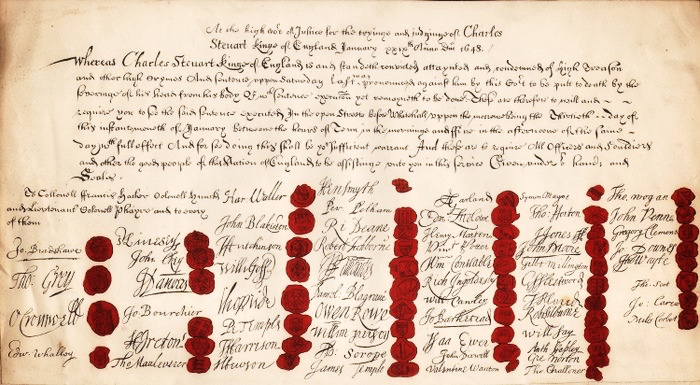 At the high Co^rt of Justice for the tryinge and iudginge of Charles
Steuart Kinge of England January xxix^th Anno Dni 1648./
Whereas Charles Steuart Kinge of England is and standeth convicted attaynted and condemned of High Treason
and other high Crymes And sentence uppon Saturday last was pronounced against him by this Co^rt to be put to death by the
severinge of his head from his body Of w^ch sentence execucon yet remayneth to be done These are therefore to will and
require you to see the said sentence executed In the open Streete before Whitehall uppon the morrowe being the Thirtieth day of
this instante moneth of January betweene the houres of Tenn in the morninge and ffive in the afternoone of the same
day w^th full effect And for soe doing this shall be yo^r sufficient warrant And these are to require All Officers and Souldiers
and other the good people of this Nation of England to be assistinge unto you in this service Given under o^r hands and
Seales
To Collonell Francis Hacker Colonell Huncks
and Lieutenant Colonell Phayre and to every
of them
Jo. Bradshawe
Tho. Grey
O Cromwell
Edw. Whalley
M Livesey
John Okey
J Danvers
Jo Bourchier
H Ireton
Tho Mauleverer
Har Waller
John Blakiston
J Hutchinson
Willi Goff
Tho Pride
Pe Temple
T Harrison
J Hewson
Hen Smyth
Per Pelham
Ri Deane
Robert Tichborne
H Edwardes
Daniel Blagrave
Owen Rowe
William Purefoy
Ad. Scrope
James Temple
A Garland
Edm Ludlowe
Henry Marten
Vinct Potter
Wm Constable
Rich Ingoldesby
Will Cawley
Jo Barkstead
Isaa Ewer
John Dixwell
Valentine Wauton
Symon Mayne
Tho Horton
J Jones
John Moore
Gilbt Millington
G Fleetwood
J Alured
Rob Lilburne
Will Say
Anth Stapley
Gre Norton
Tho Challoner
Tho Wogan
John Venn
Gregory Clement
Jo Downes
Tho Wayte
Tho Scot
Jo Carew
Miles Corbet